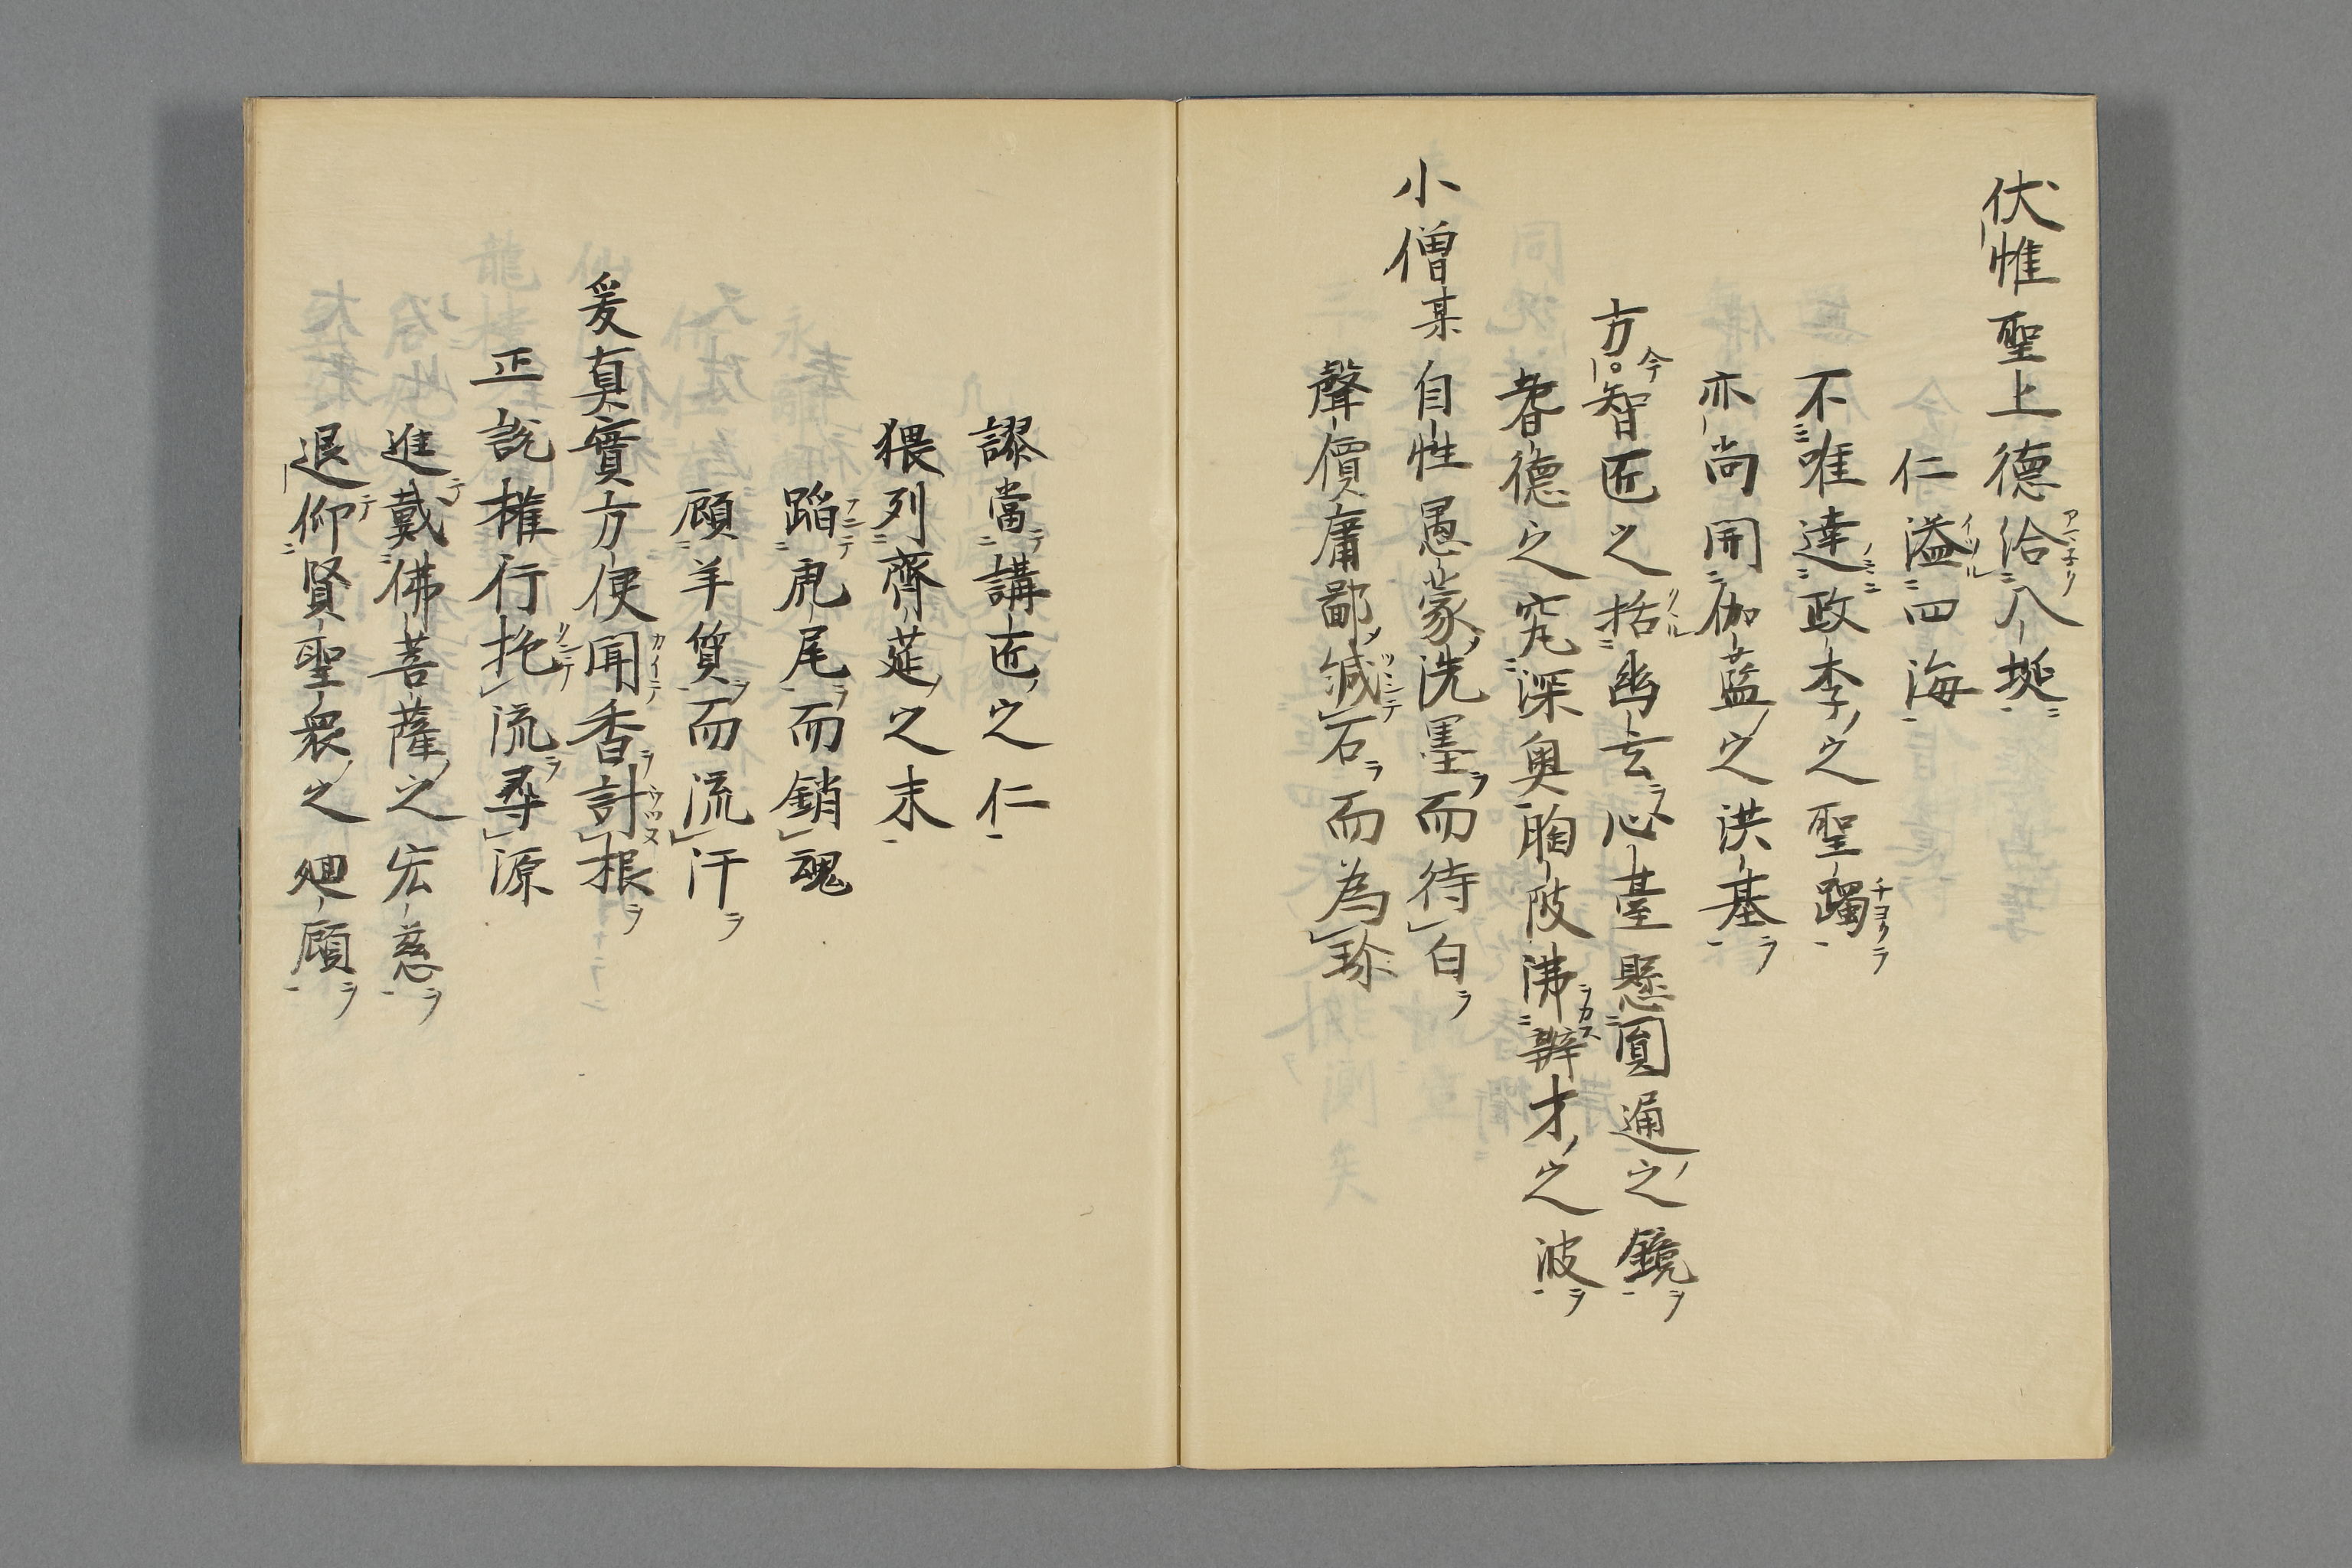 伏惟聖上徳洽八埏
仁溢四海
不唯達政李之聖躅
亦尚開伽藍之洪基
方今智匠之括幽玄心臺懸圓通之鏡
耆徳之究深奥胸陂沸辯才之波
小僧某自性愚蒙洗墨而待白
聲價庸鄙緘石而為珎
謬當講匠之仁
猥列齊莚之末
蹈虎尾而銷魂
顧羊質而流汗
爰真實方便聞香討根
正説權行挹流尋源
進戴佛菩薩之宏慈
退仰賢聖衆之廻顧